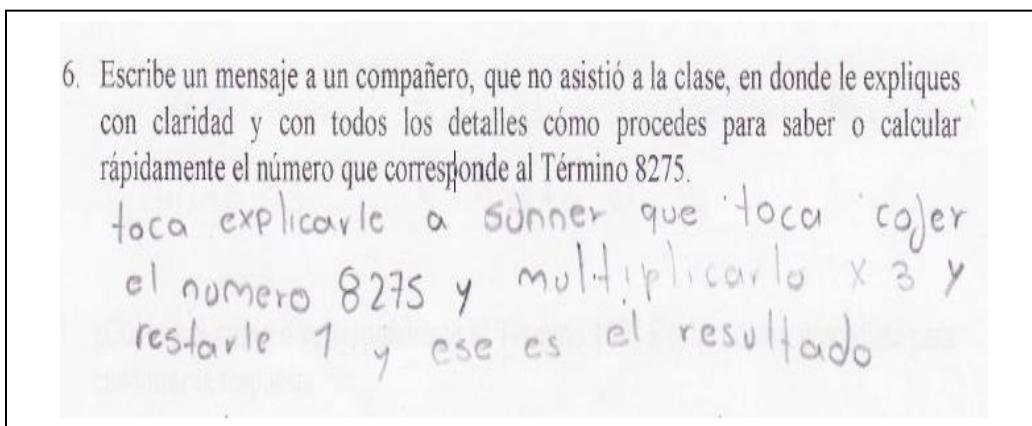 6. Escribe un mensaje a un compañero, que no asistió a la clase, en donde le expliques
con claridad y con todos los detalles cómo procedes para saber o calcular
rápidamente el número que corresponde al Término 8275.
toca explicarle a sunner que toca cojer
el numero 8275 y multiplicarlo x 3 y
restarle 1 y ese es el resultado